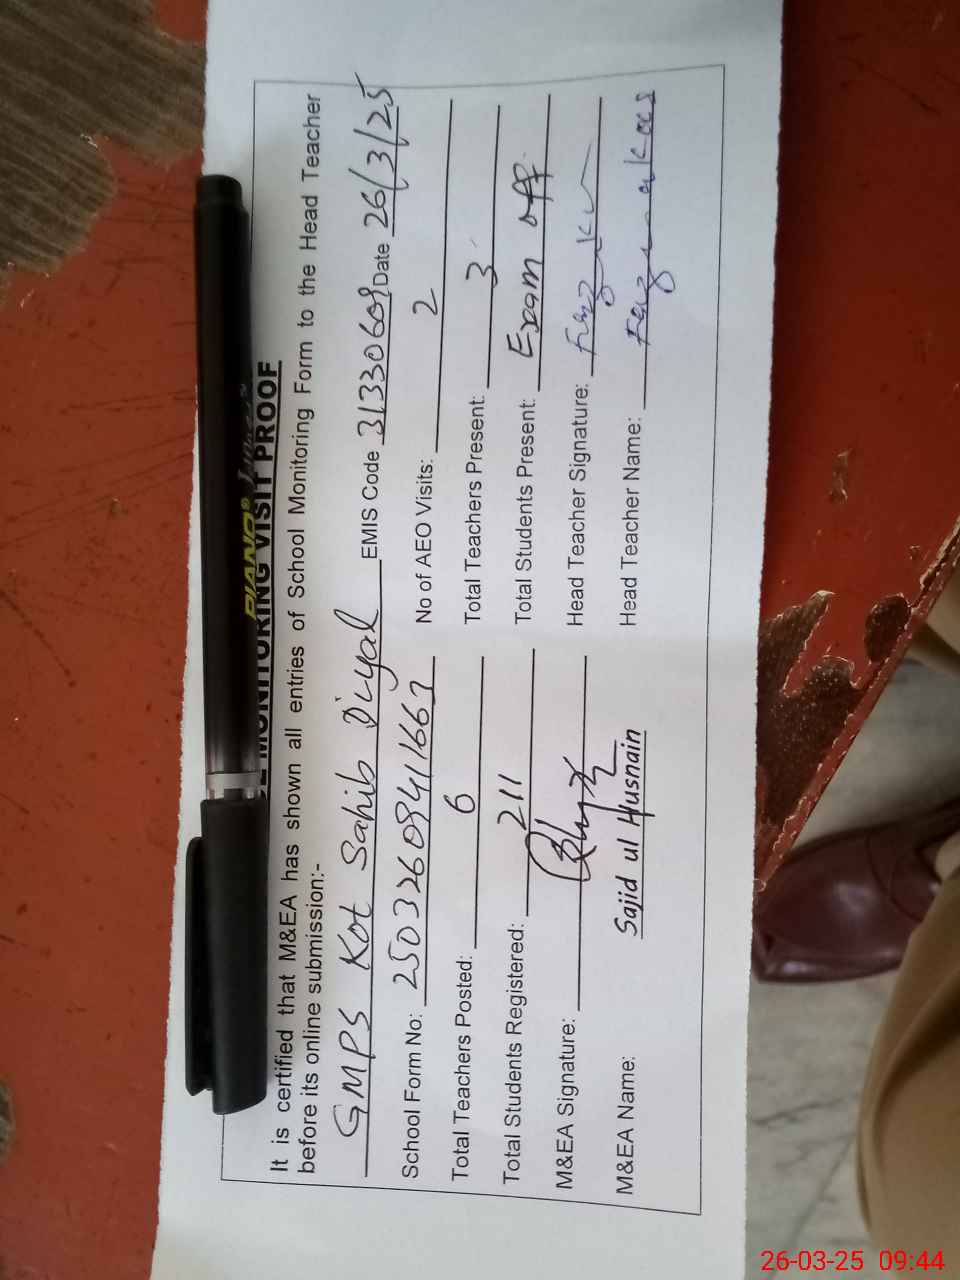 MONITORING VISIT PROOF
PIANO®
It is certified that M&EA has shown all entries of School Monitoring Form to the Head Teacher
before its online submission:-
GMPS Kot Sahib Diyal EMIS Code 31330609 Date 26/3/25
School Form No: 25032609411663 No of AEO Visits: 2
Total Teachers Posted: 6 Total Teachers Present: 3
Total Students Registered: 211 Total Students Present: Exam off.
M&EA Signature: Head Teacher Signature:
M&EA Name: Sajid ul Husnain Head Teacher Name:
26-03-25 09:44